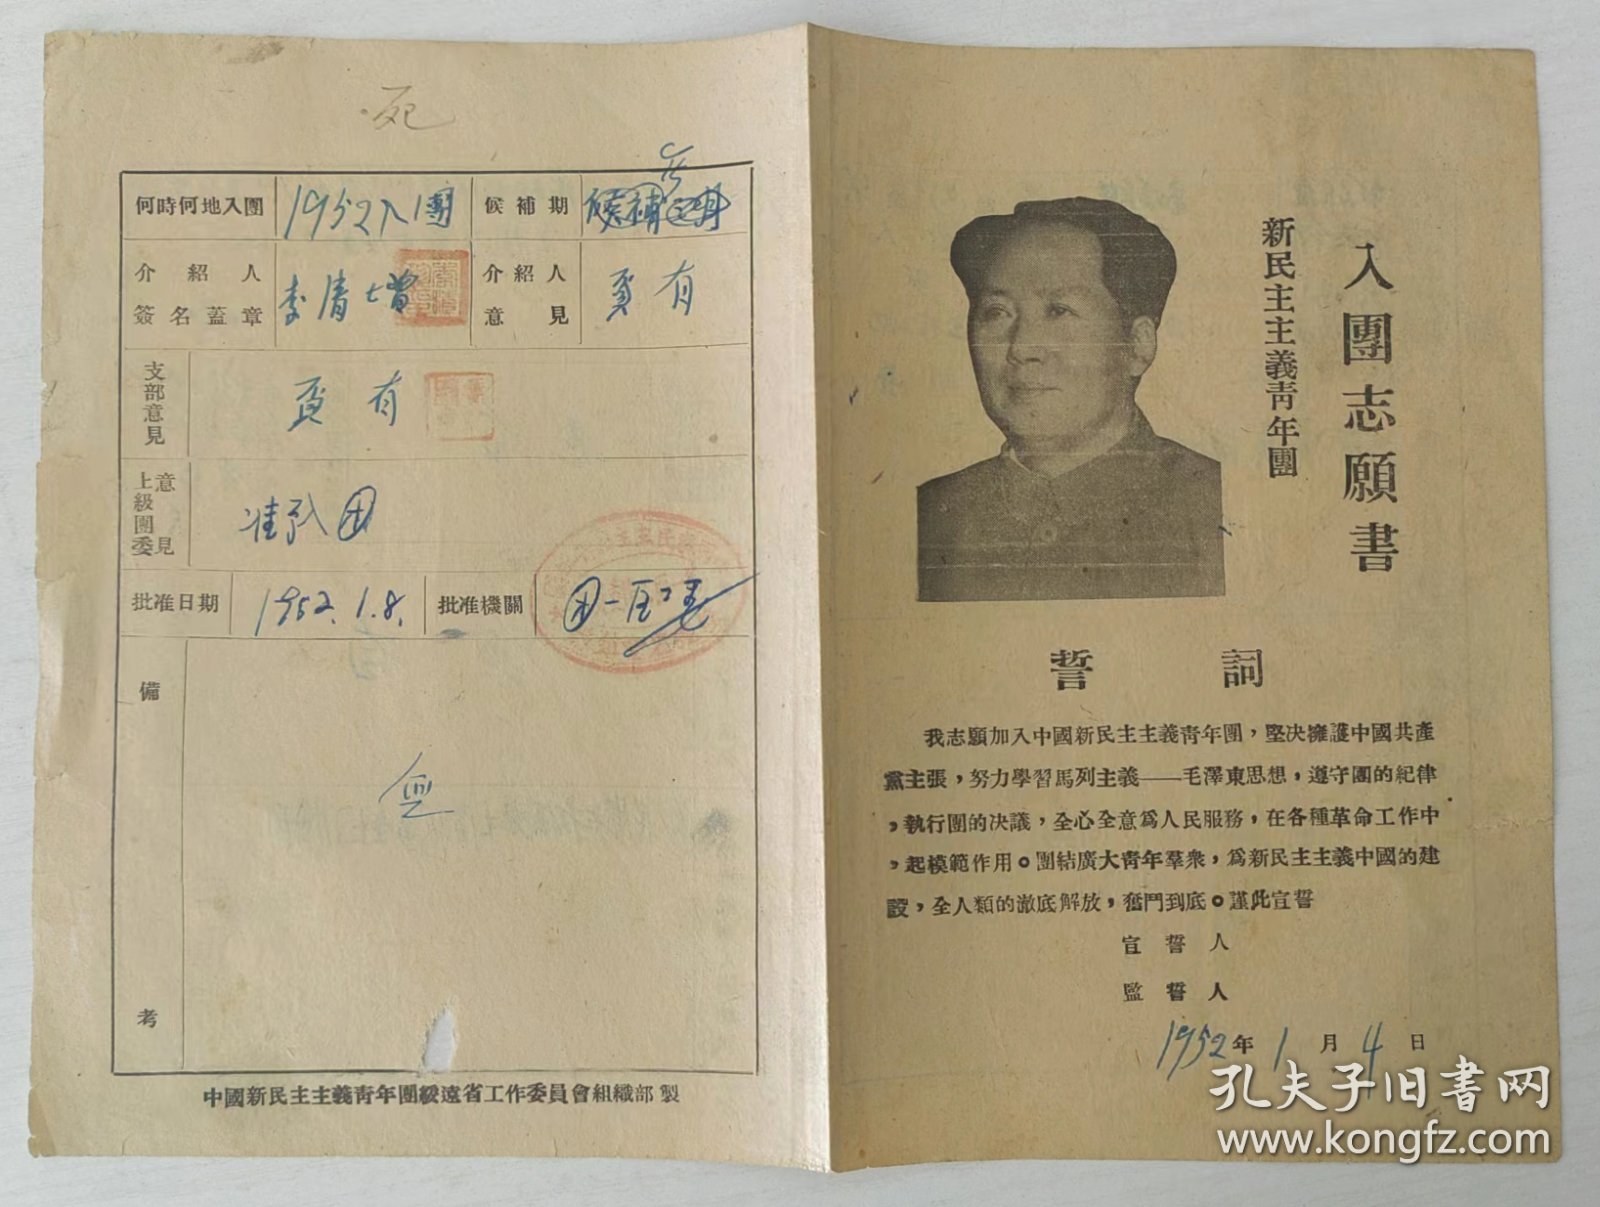 死
何時何地入團
1952入團
候補期
介紹人
簽名蓋章
李清增
介紹人
意見
支部意見
上級團委意見
批准日期
1952.1.8.
批准機關
備考
中國新民主主義青年團綏遠省工作委員會組織部製
新民主主義青年團
入團志願書
誓詞
我志願加入中國新民主主義青年團，堅决擁護中國共產
黨主張，努力學習馬列主義——毛澤東思想，遵守團的紀律
，執行團的决議，全心全意為人民服務，在各種革命工作中
，起模範作用。團結廣大青年羣衆，為新民主主義中國的建
設，全人類的澈底解放，奮鬥到底。謹此宣誓
宣誓人
監誓人
1952年1月4日
孔夫子旧书网
www.kongfz.com